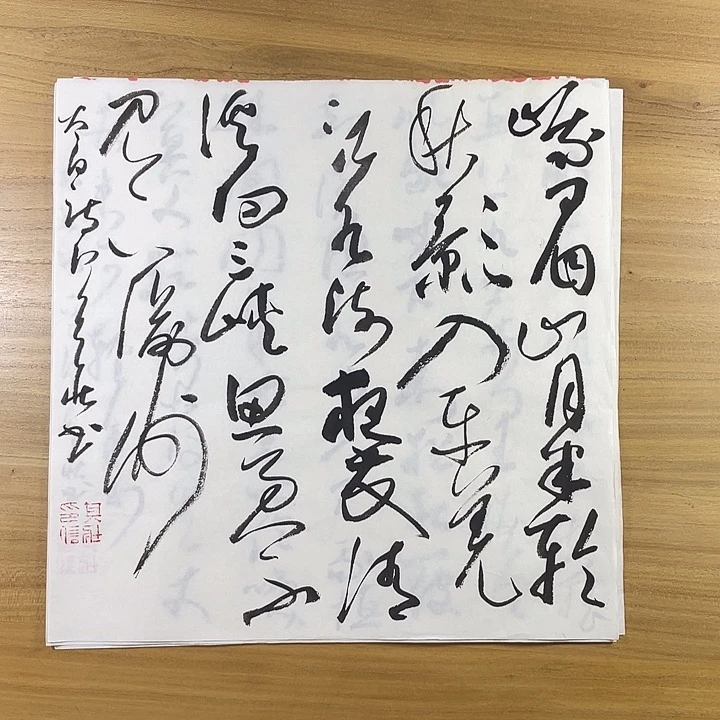 峨眉山月半輪
秋影入平羌
江水流夜發清
溪向三峽思君不
見下渝州
太白詩